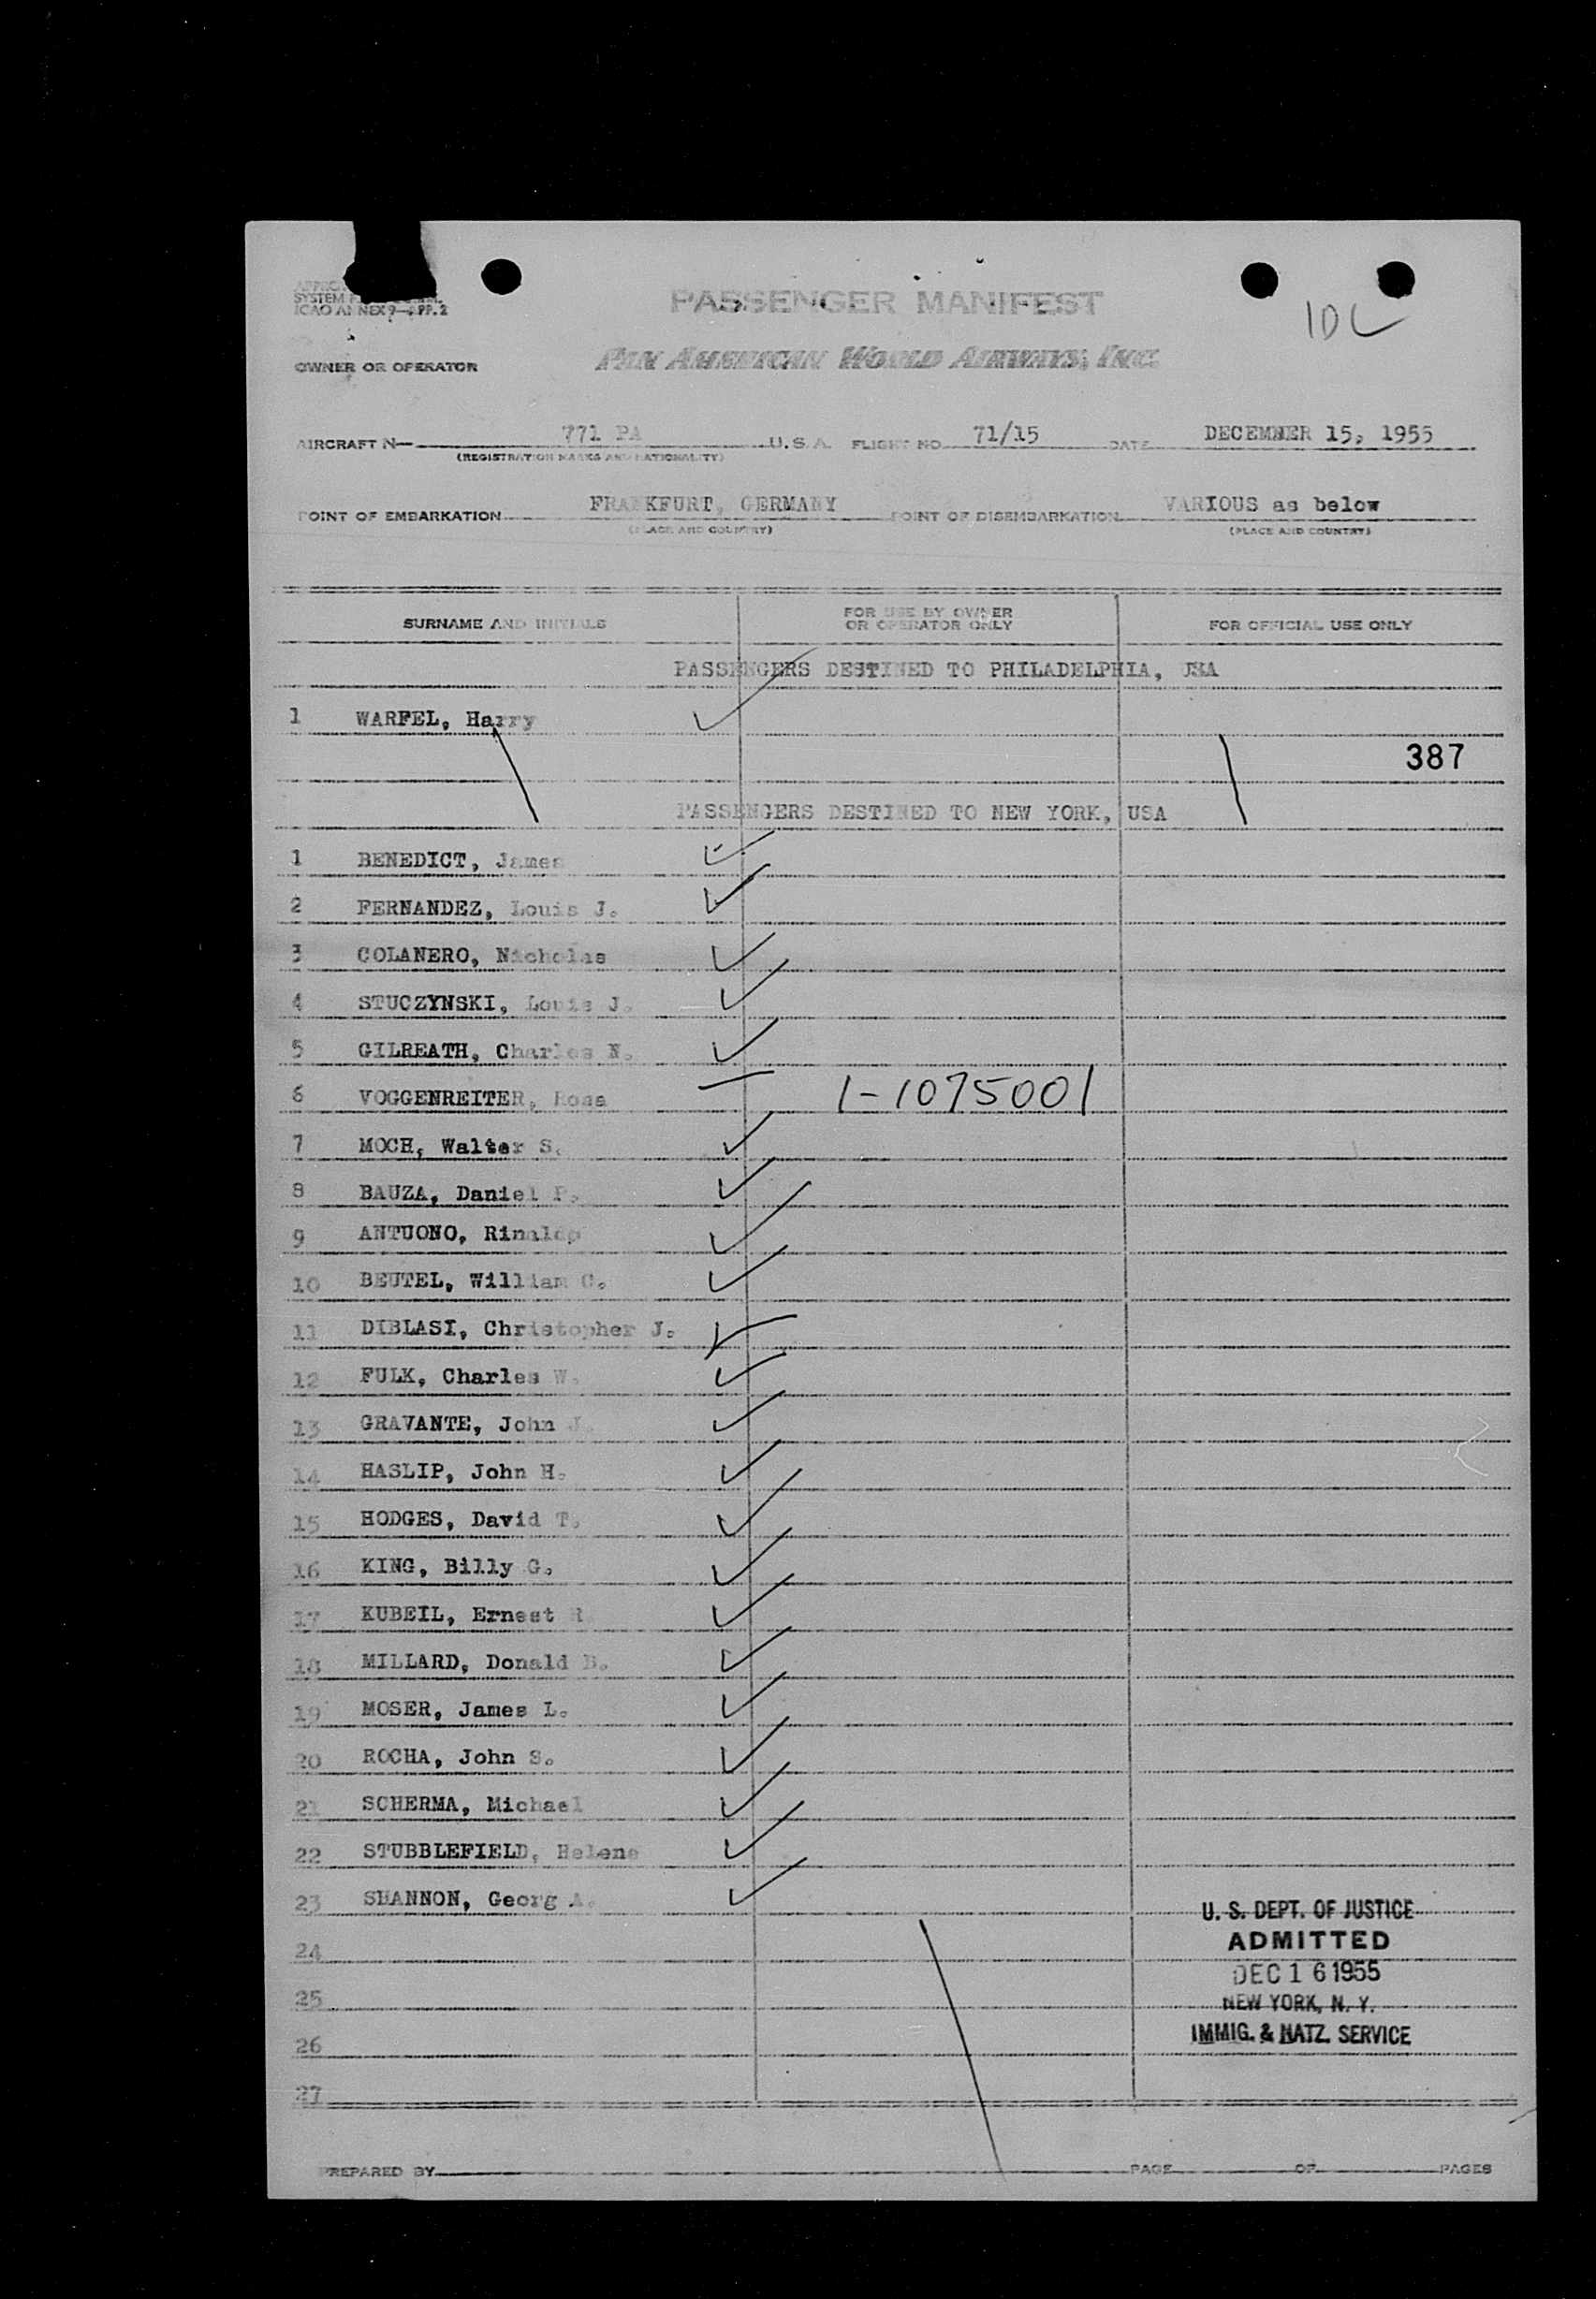 SYSTEM
ICAO ANNEX 9—APP. 2
PASSENGER MANIFEST
10
OWNER OR OPERATOR
PAN AMERICAN WORLD AIRWAYS, INC.
AIRCRAFT N— 771 PA U.S.A. FLIGHT NO 71/15 DATE DECEMBER 15, 1955
(REGISTRATION MARKS AND NATIONALITY)
POINT OF EMBARKATION FRANKFURT, GERMANY POINT OF DISEMBARKATION VARIOUS as below
(PLACE AND COUNTRY) (PLACE AND COUNTRY)
SURNAME AND INITIALS FOR USE BY OWNER OR OPERATOR ONLY FOR OFFICIAL USE ONLY
PASSENGERS DESTINED TO PHILADELPHIA, USA
1 WARFEL, Harry
387
PASSENGERS DESTINED TO NEW YORK, USA
1 BENEDICT, James
2 FERNANDEZ, Louis J.
3 COLANERO, Nicholas
4 STUCZYNSKI, Louis J.
5 GILREATH, Charles N.
6 VOGGENREITER, Rosa 1-1075001
7 MOCH, Walter S.
8 BAUZA, Daniel P.
9 ANTUONO, Rinaldo
10 BEUTEL, William C.
11 DIBLASI, Christopher J.
12 FULK, Charles W.
13 GRAVANTE, John J.
14 HASLIP, John H.
15 HODGES, David T.
16 KING, Billy G.
17 KUBEIL, Ernest R.
18 MILLARD, Donald B.
19 MOSER, James L.
20 ROCHA, John S.
21 SCHERMA, Michael
22 STUBBLEFIELD, Helene
23 SHANNON, Georg A.
24
25
26
27
U. S. DEPT. OF JUSTICE
ADMITTED
DEC 16 1955
NEW YORK, N. Y.
IMMIG. & NATZ. SERVICE
PREPARED BY PAGE OF PAGES